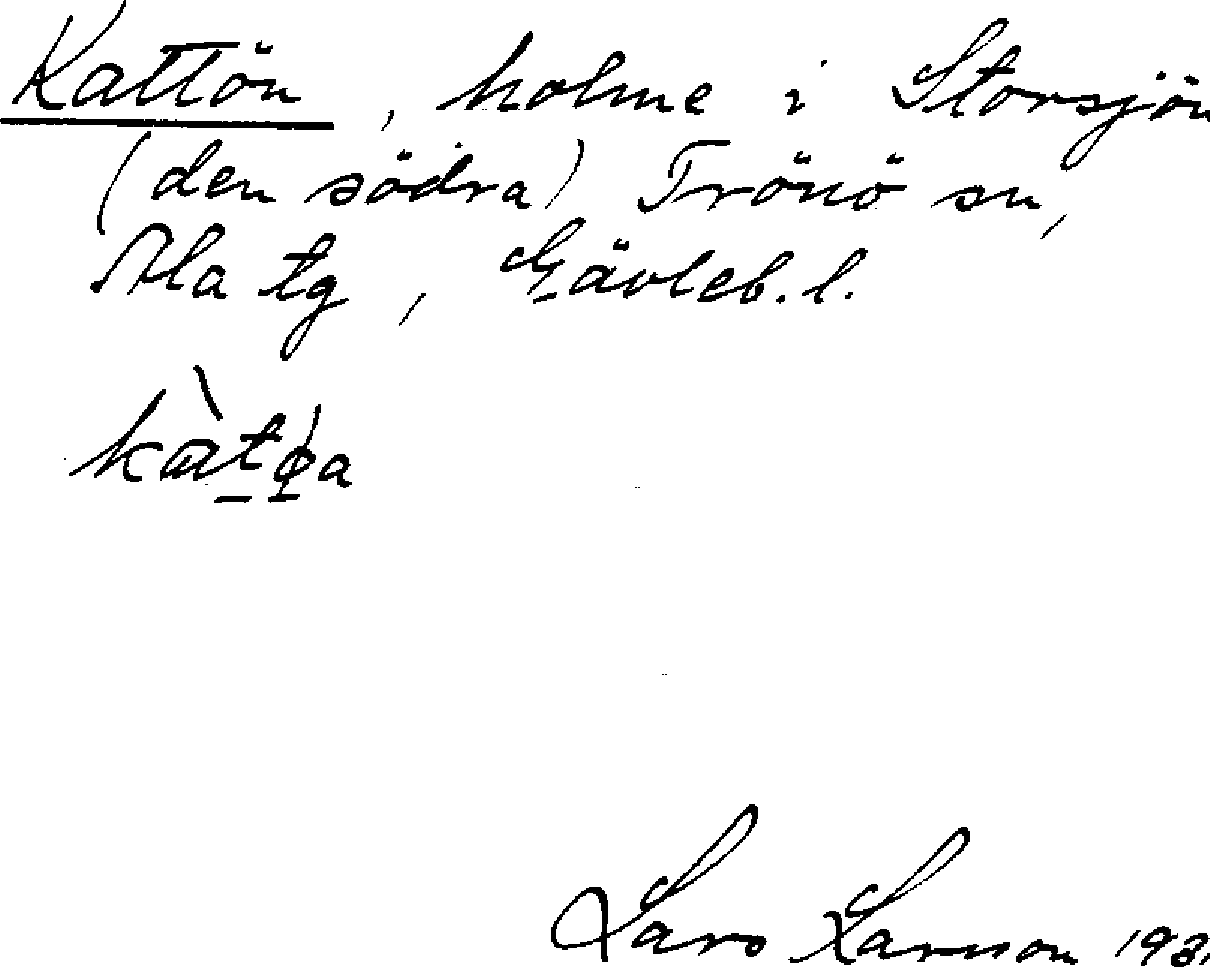 Kattön, holme i Storsjön
(den södra) Trönö sn,
Ala tg, Gävleb. l.
kàtøa
Lars Larsson 193